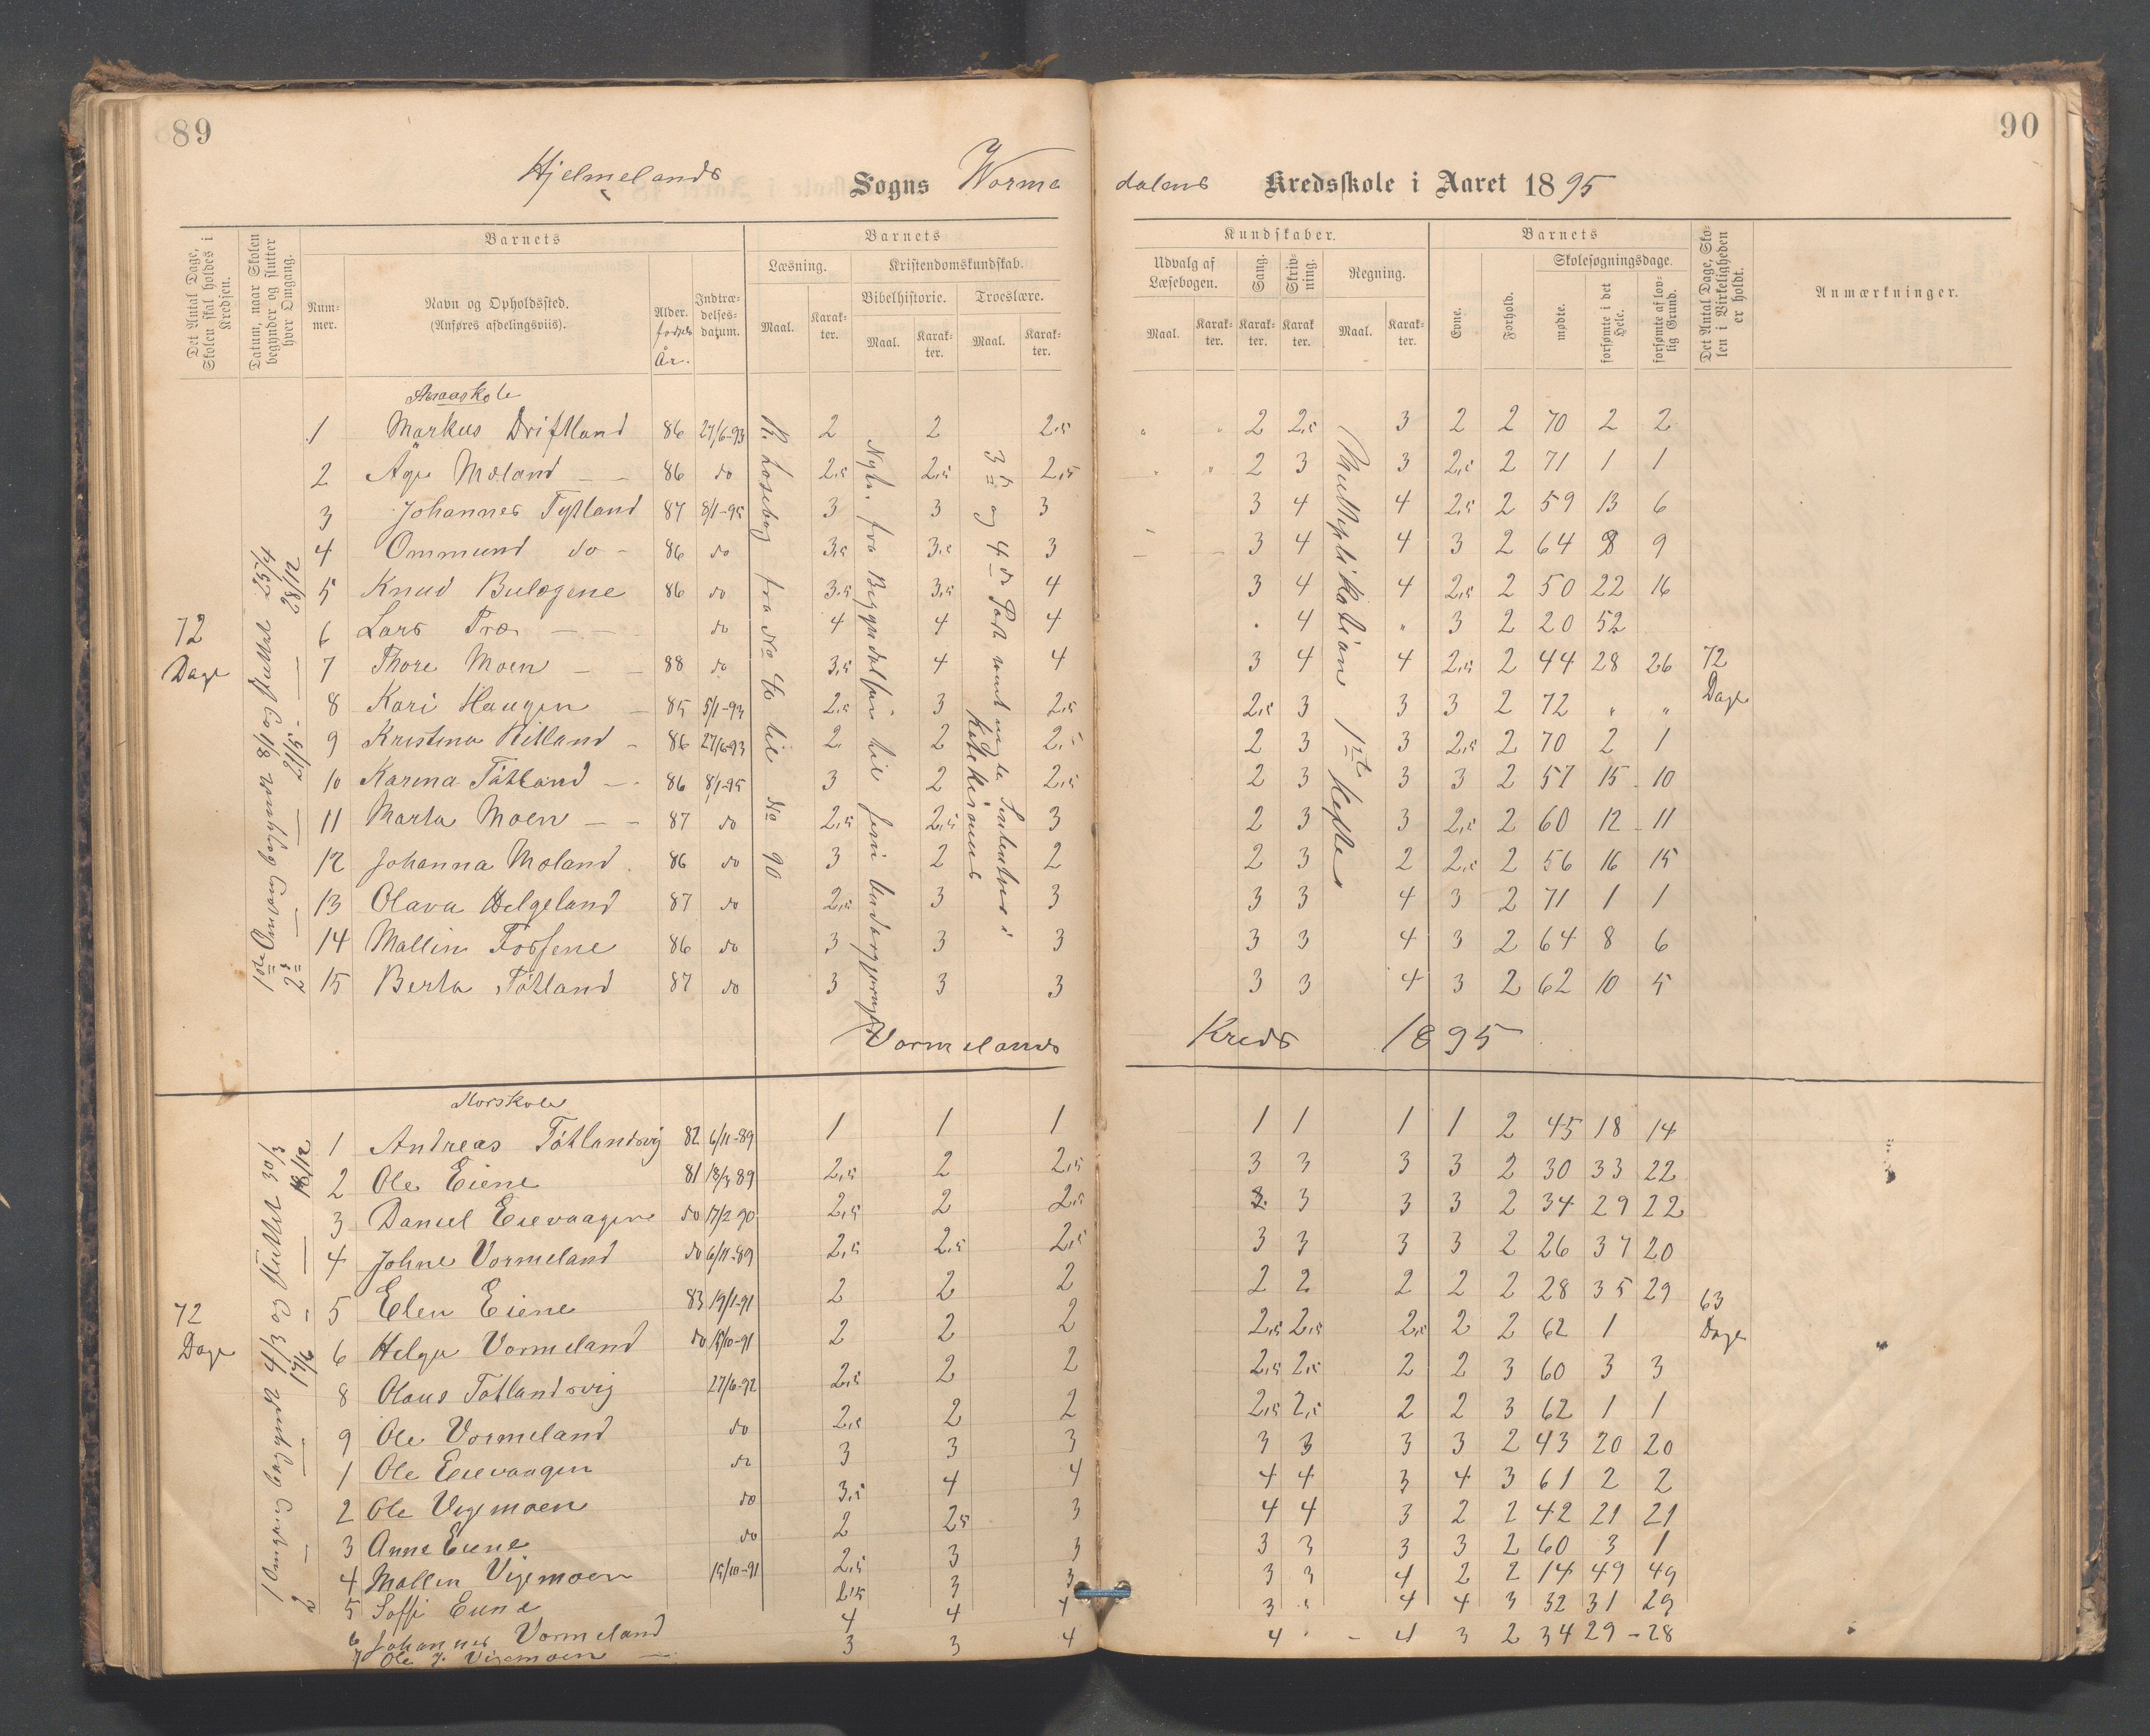 89
90
Hjelmelands Sogns Worme dalens Kredsskole i Aaret 1895
Det Antal Dage, Skolen skal holdes i Kredsen.
Datum, naar Skolen begynder og slutter hver Omgang.
Barnets
Nummer.
Navn og Opholdssted. (Anføres afdelingsviis).
Alder. fødsels År.
Indtrædelsesdatum.
Barnets
Læsning.
Maal.
Karakter.
Kristendomskundskab.
Bibelhistorie.
Maal.
Karakter.
Troeslære.
Maal.
Karakter.
Kundskaber.
Udvalg af Læsebogen.
Maal.
Karakter.
Sang.
Karakter.
Skrivning.
Karakter.
Regning.
Maal.
Karakter.
Barnets
Evne.
Forhold.
Skolesøgningsdage.
mødte.
forsømte i det Hele.
forsømte af lovlig Grund.
Det Antal Dage, Skolen i Virkeligheden er holdt.
Anmærkninger.
Smaaskole
72 Dage
1ste Omgang begyndte 8/1 og sluttet 25/4
2 — — 21/5 — 28/12
R. Læsebog fra No 40 til No 90
3die og 4de Part samt nogle i Katekismus
Multiplikation 1ste Hefte
72 Dage
1 Markus Driftland 86 27/6-93 2 2 2,5 2 2,5 3 2 2 70 2 2
2 Åge Mæland 86 do 2,5 2,5 2,5 2 3 3 2,5 2 71 1 1
3 Johannes Tytland 87 8/1-95 3 3 3 3 4 4 2,5 2 59 13 6
4 Ommund do 86 do 3,5 3,5 3 3 4 4 3 2 64 8 9
5 Knud Bulægene 86 do 3,5 3,5 4 3 4 4 2,5 2 50 22 16
6 Lars Træ do 4 4 4 4 3 2 20 52
7 Thore Moen 88 do 3,5 4 4 3 4 4 2,5 2 44 28 26
8 Kari Haugen 85 5/1-94 2,5 3 2,5 2,5 3 3 3 2 72 " "
9 Kristina Ritland 86 27/6-93 2 2 2,5 2 3 3 2,5 2 70 2 1
10 Karina Tøtland 86 8/1-95 3 2 2,5 2 3 3 3 2 57 15 10
11 Marta Moen 87 do 2,5 2,5 3 2 3 3 2,5 2 60 12 11
12 Johanna Mæland 86 do 3 2 2 2 3 2 2,5 2 56 16 15
13 Olava Helgeland 87 do 2,5 3 3 3 3 4 3 2 71 1 1
14 Mallin Fossene 86 do 3 3 3 3 3 4 3 2 64 8 6
15 Berta Tøtland 87 do 3 3 3 3 3 4 3 2 62 10 5
Vormelands Kreds 1895
Storskole
72 Dage
1 Omgang begyndte 4/3 og sluttet 30/3
2 — — 17/6 — 18/12
63 Dage
1 Andreas Tøtlandsvig 82 6/11-89 1 1 1 1 1 1 1 2 45 18 14
2 Ole Eiene 81 18/3 89 2,5 2 2,5 3 3 3 3 2 30 33 22
3 Daniel Eievaagen do 17/2 90 2,5 2 2,5 3 3 3 3 2 34 29 22
4 Johne Vormeland do 6/11-89 2,5 2,5 2,5 3 3 3 3 2 26 37 20
5 Elen Eiene 83 19/1-91 2 2 2 2 2 2 2 2 28 35 29
6 Helga Vormeland do 15/10-91 2 2 2 2,5 2,5 2,5 2 2 62 1
8 Olaus Tøtlandsvig 27/6-92 2,5 2 2 2,5 2,5 2 2 3 60 3 3
9 Ole Vormeland do 2,5 2 2 2,5 2,5 2 2 3 62 1 1
1 Ole Eievaagen do 3 3 3 3 3 3 3 2 43 20 20
2 Ole Vigemoen do 3,5 4 4 4 4 3 4 3 61 2 2
3 Anna Eiene do 2 2,5 3 4 4 3 2 2 42 21 21
4 Mallin Vigemoen 15/10-91 2,5 3 3 3 3 3 3 2 60 3 1
5 Soffi Eiene 2,5 3 3 3 3 4 2 2 14 49 49
6 Johannes Vormeland 4 4 4 3 4 4 3 32 31 29
7 Ole J. Vigemoen 3 3 4 4 4 3 2 34 29 28